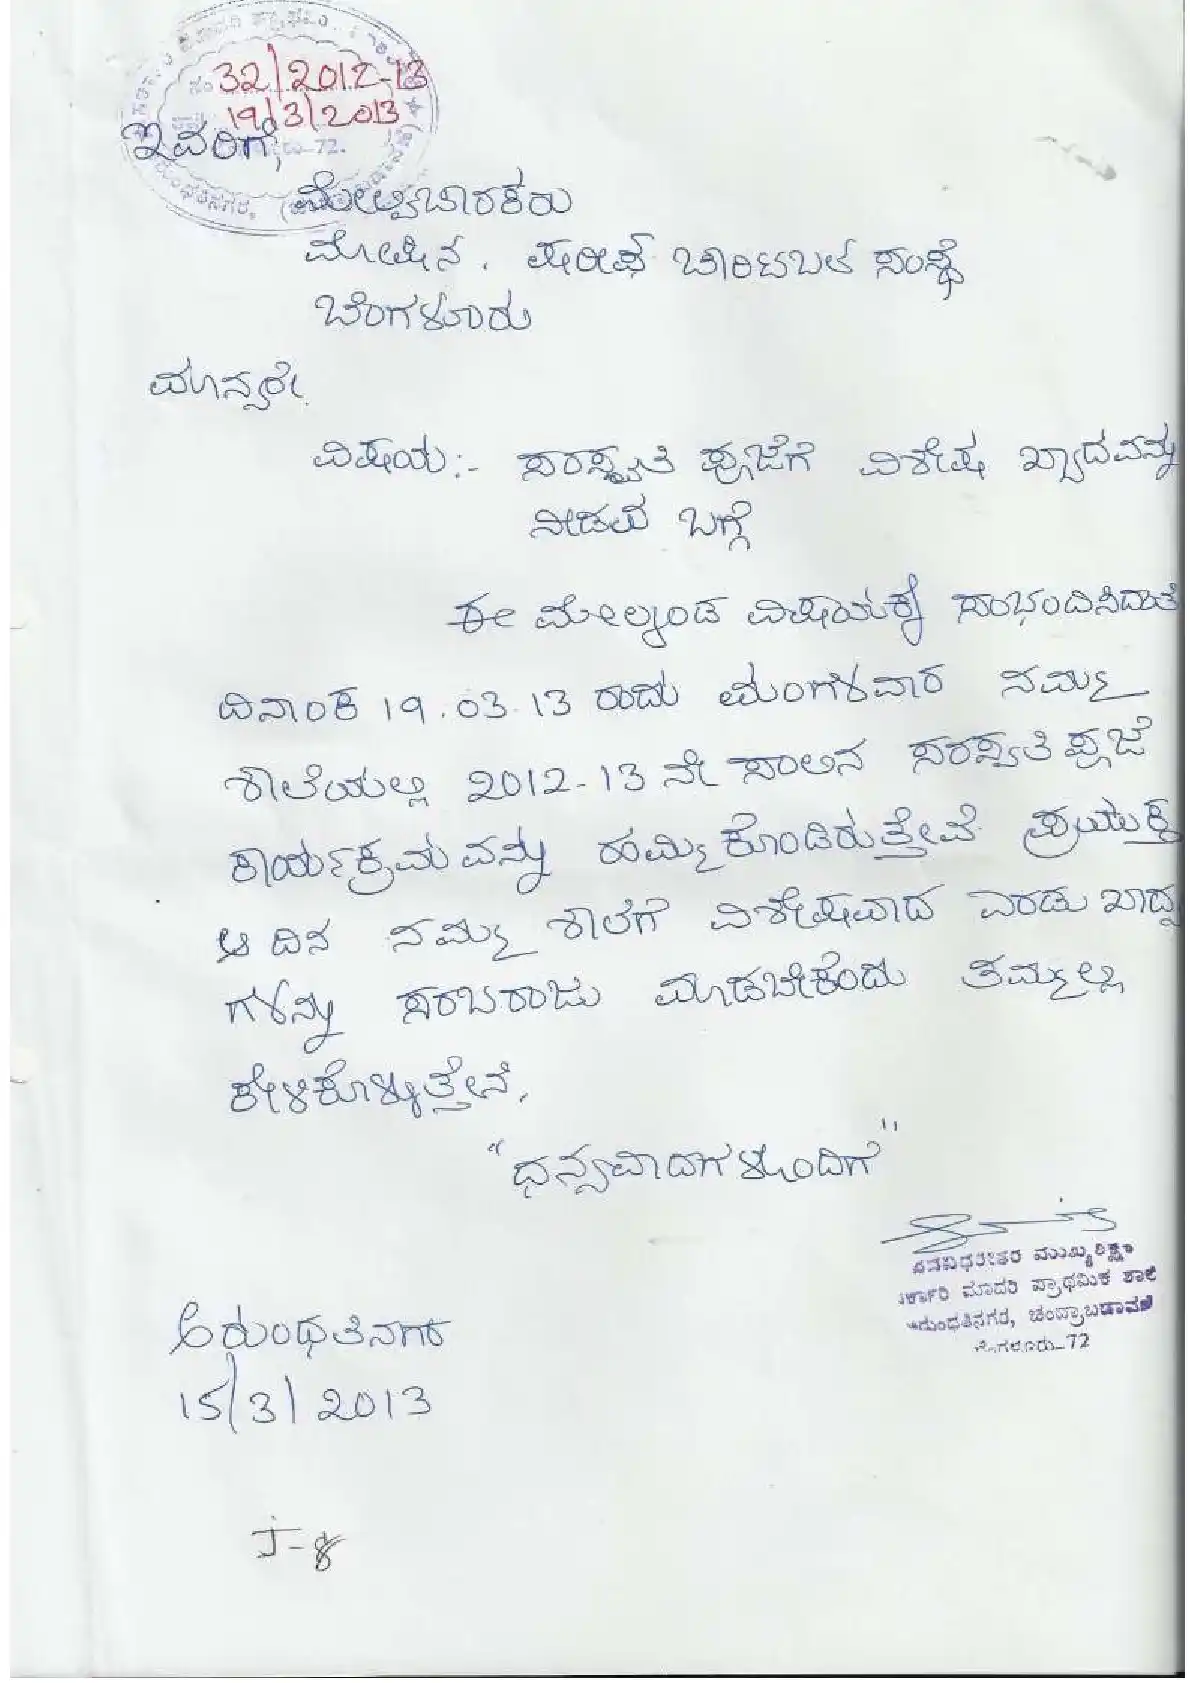 32/2012-13
19/3/2013
-72.
ಇವರಿಗೆ,
ಮೇಲ್ವಿಚಾರಕರು
ಮೋಷಿನ. ಷರೀಫ್ ಚಾರಿಟಬಲ ಸಂಸ್ಥೆ
ಬೆಂಗಳೂರು
ಮಾನ್ಯರೇ.
ವಿಷಯ:- ಸರಸ್ವತಿ ಪೂಜೆಗೆ ವಿಶೇಷ ಖ್ಯಾದವನ್ನು
ನೀಡುವ ಬಗ್ಗೆ
ಈ ಮೇಲ್ಕಂಡ ವಿಷಯಕ್ಕೆ ಸಂಭಂದಿಸಿದಂತೆ
ದಿನಾಂಕ 19.03.13 ರಂದು ಮಂಗಳವಾರ ನಮ್ಮ
ಶಾಲೆಯಲ್ಲಿ 2012-13 ನೇ ಸಾಲಿನ ಸರಸ್ವತಿ ಪೂಜೆ
ಕಾರ್ಯಕ್ರಮವನ್ನು ಹಮ್ಮಿಕೊಂಡಿರುತ್ತೇವೆ ಪ್ರಯುಕ್ತ
ಆ ದಿನ ನಮ್ಮ ಶಾಲೆಗೆ ವಿಶೇಷವಾದ ಎರಡು ಖಾದ್ಯ
ಗಳನ್ನು ಸರಬರಾಜು ಮಾಡಬೇಕೆಂದು ತಮ್ಮಲ್ಲಿ
ಕೇಳಿಕೊಳ್ಳುತ್ತೇನೆ.
"ಧನ್ಯವಾದಗಳೊಂದಿಗೆ"
ಮುಖ್ಯಶಿಕ್ಷ
ಮಾದರಿ ಪ್ರಾಥಮಿಕ ಶಾಲೆ
ರುಂಧತಿನಗರ, ಚಂದ್ರಾಬಡಾವಣೆ
ಗಳೂರು-72
ಅರುಂಧತಿನಗರ
15/3/2013
J-8